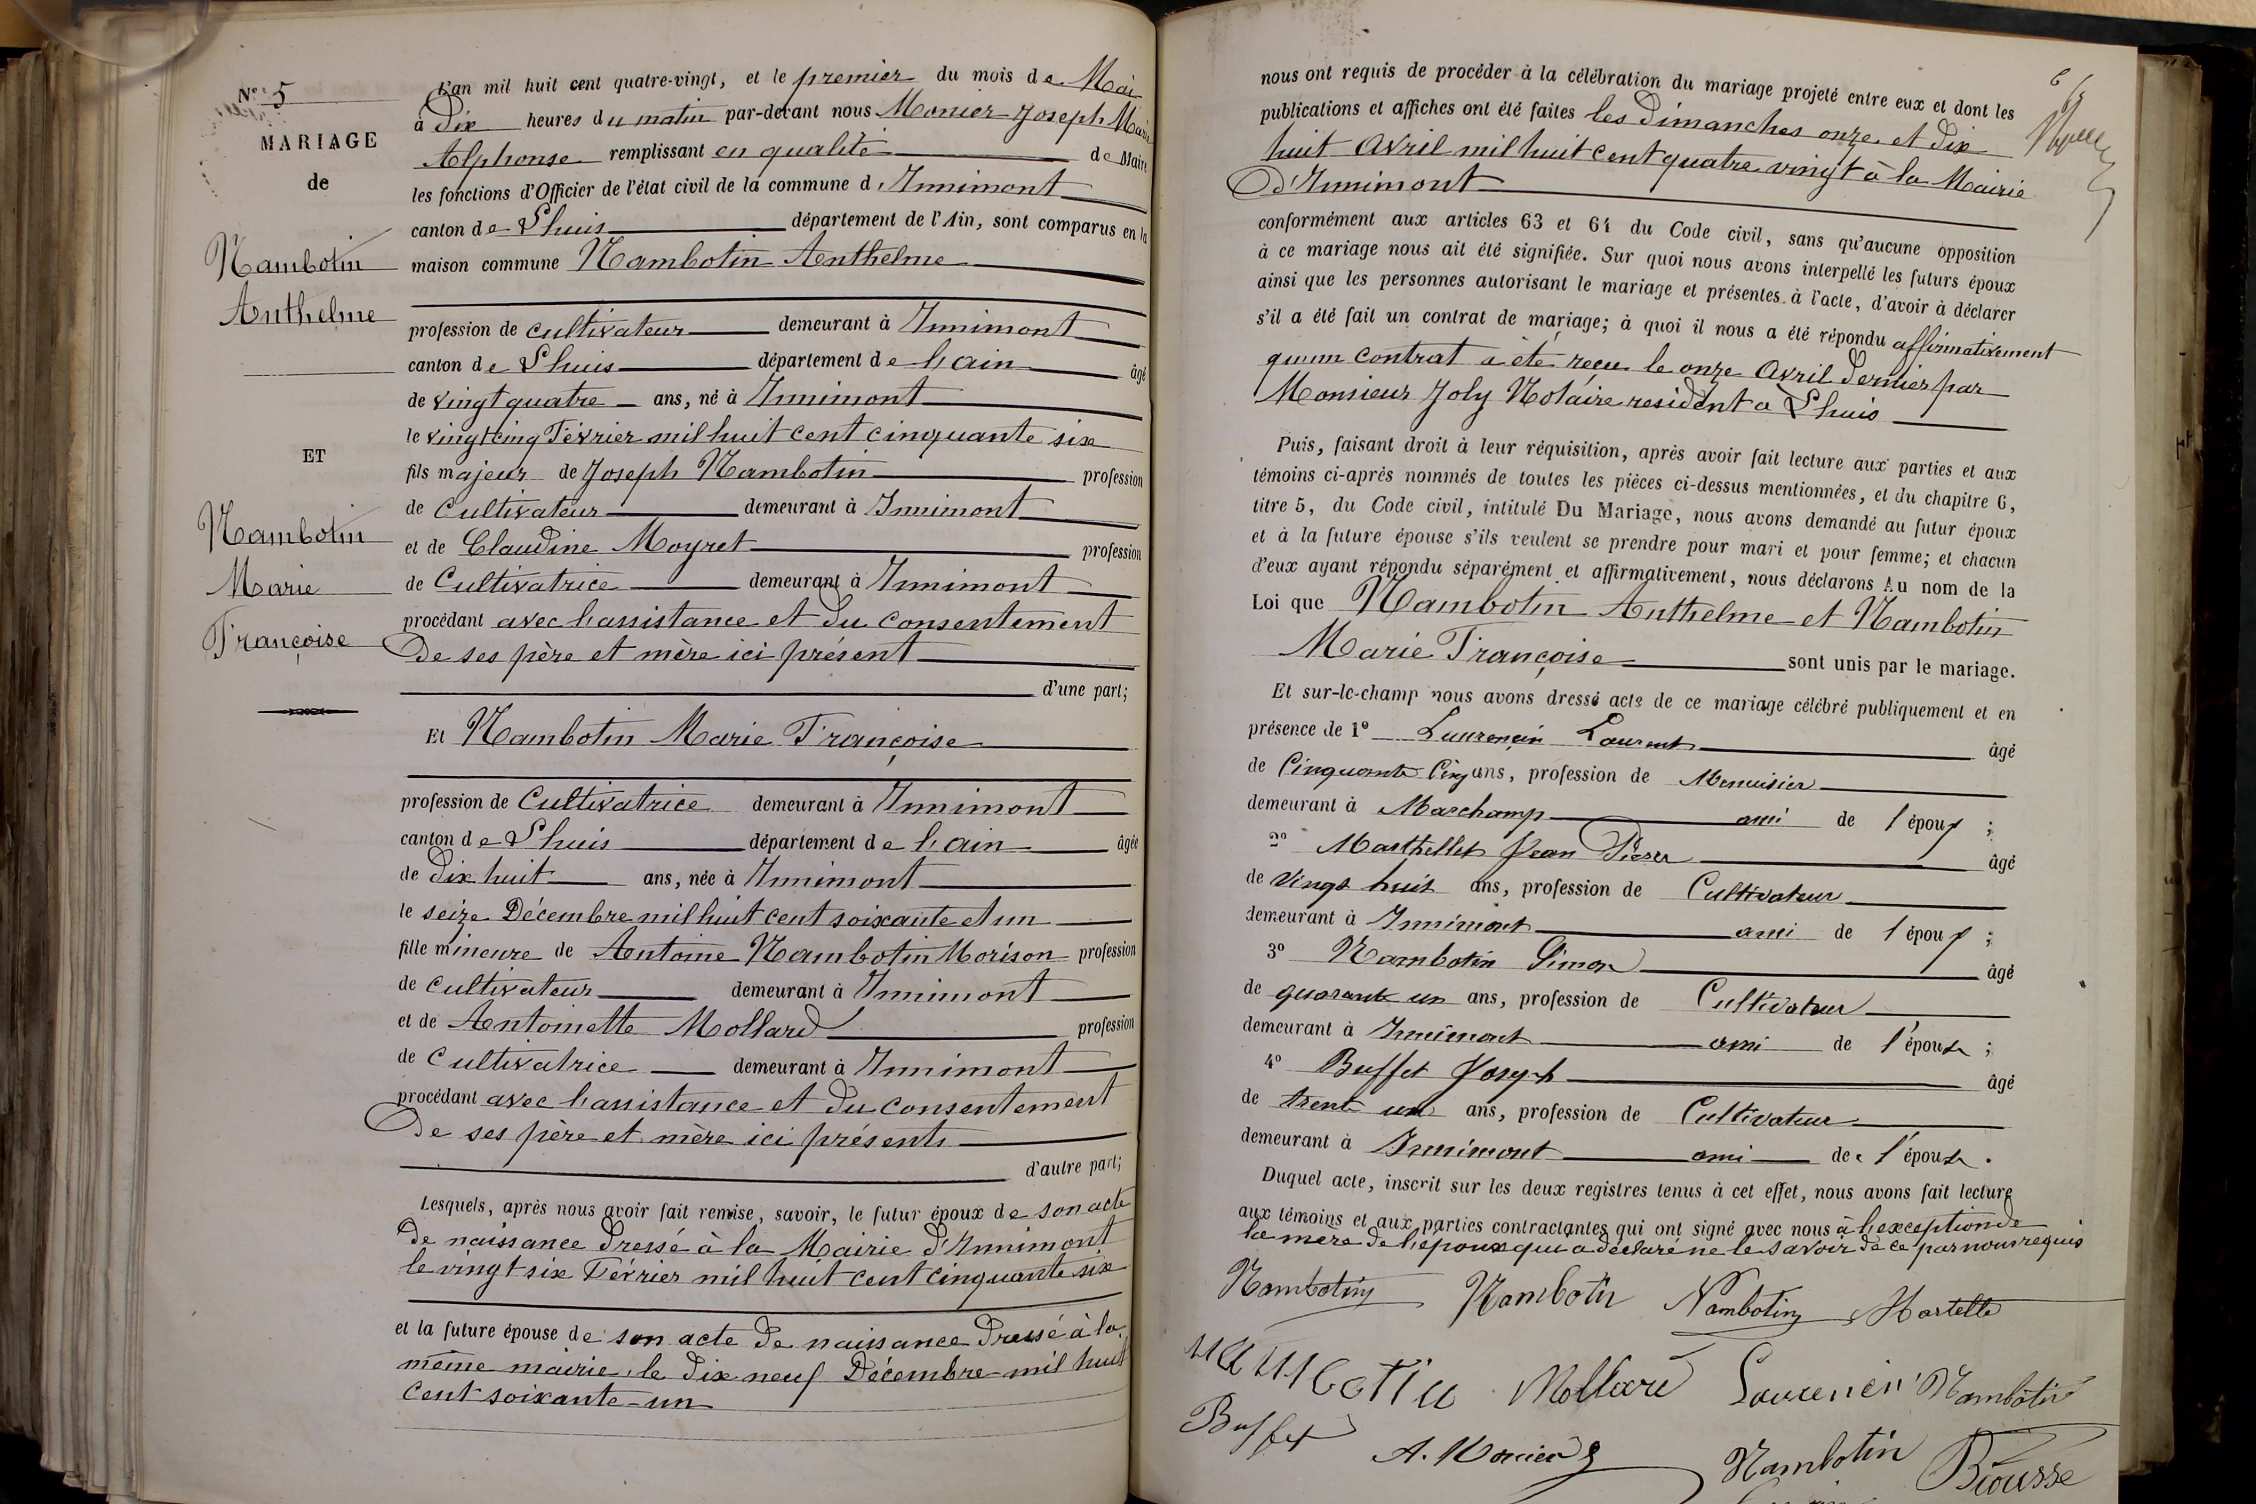 N° 5
MARIAGE
de
Nambotin
Anthelme
ET
Nambotin
Marie
Françoise
L'an mil huit cent quatre-vingt, et le premier du mois de Mai
à Dix heures du matin par-devant nous Monier Joseph Marie
Alphonse remplissant en qualité de Maire
les fonctions d'Officier de l'état civil de la commune d'Innimont
canton de Lhuis département de l'Ain, sont comparus en la
maison commune Nambotin Anthelme
profession de cultivateur demeurant à Innimont
canton de Lhuis département de l'ain âgé
de vingt quatre ans, né à Innimont
le vingt cinq Février mil huit cent cinquante six
fils majeur de Joseph Nambotin profession
de Cultivateur demeurant à Innimont
et de Claudine Moyret profession
de Cultivatrice demeurant à Innimont
procédant avec l'assistance et du consentement
De ses père et mère ici présent
d'une part;
Et Nambotin Marie Françoise
profession de Cultivatrice demeurant à Innimont
canton de Lhuis département de l'ain âgée
de Dix huit ans, née à Innimont
le seize Décembre mil huit cent soixante et un
fille mineure de Antoine Nambotin Morison profession
de cultivateur demeurant à Innimont
et de Antoinette Mollard profession
de Cultivatrice demeurant à Innimont
procédant avec l'assistance et du consentement
De ses père et mère ici présents
d'autre part;
Lesquels, après nous avoir fait remise, savoir, le futur époux de son acte
de naissance Dressé à la Mairie d'Innimont
le vingt six Février mil huit cent cinquante six
et la future épouse de son acte de naissance Dressé à la
même mairie, le Dix neuf Décembre mil huit
cent soixante-un
nous ont requis de procéder à la célébration du mariage projeté entre eux et dont les
publications et affiches ont été faites les Dimanches onze et Dix
huit Avril mil huit cent quatre vingt à la Mairie
D'Innimont
conformément aux articles 63 et 64 du Code civil, sans qu'aucune opposition
à ce mariage nous ait été signifiée. Sur quoi nous avons interpellé les futurs époux
ainsi que les personnes autorisant le mariage et présentes à l'acte, d'avoir à déclarer
s'il a été fait un contrat de mariage; à quoi il nous a été répondu affirmativement
qu'un contrat a été reçu le onze Avril Dernier par
Monsieur Joly Notaire resident à Lhuis
Puis, faisant droit à leur réquisition, après avoir fait lecture aux parties et aux
témoins ci-après nommés de toutes les pièces ci-dessus mentionnées, et du chapitre 6,
titre 5, du Code civil, intitulé Du Mariage, nous avons demandé au futur époux
et à la future épouse s'ils veulent se prendre pour mari et pour femme; et chacun
d'eux ayant répondu séparément et affirmativement, nous déclarons Au nom de la
Loi que Nambotin Anthelme et Nambotin
Marie Françoise sont unis par le mariage.
Et sur-le-champ nous avons dressé acte de ce mariage célébré publiquement et en
présence de 1° Laurencin Laurent âgé
de Cinquante Cinq ans, profession de Menuisier
demeurant à Marchamp ami de l'époux ;
2° Marthellet Jean Pierre âgé
de Vingt huit ans, profession de Cultivateur
demeurant à Innimont ami de l'époux ;
3° Nambotin Simon âgé
de quarante un ans, profession de Cultivateur
demeurant à Innimont ami de l'épouse ;
4° Buffet Joseph âgé
de trente un ans, profession de Cultivateur
demeurant à Innimont ami de l'épouse.
Duquel acte, inscrit sur les deux registres tenus à cet effet, nous avons fait lecture
aux témoins et aux parties contractantes qui ont signé avec nous à l'exception de
la mère de l'époux qui a déclaré ne le savoir de ce par nous requis
Nambotin Nambotin Nambotin Martelle
nambotin Mollard Laurencin Nambotin
Buffet A. Monier Nambotin Brousse